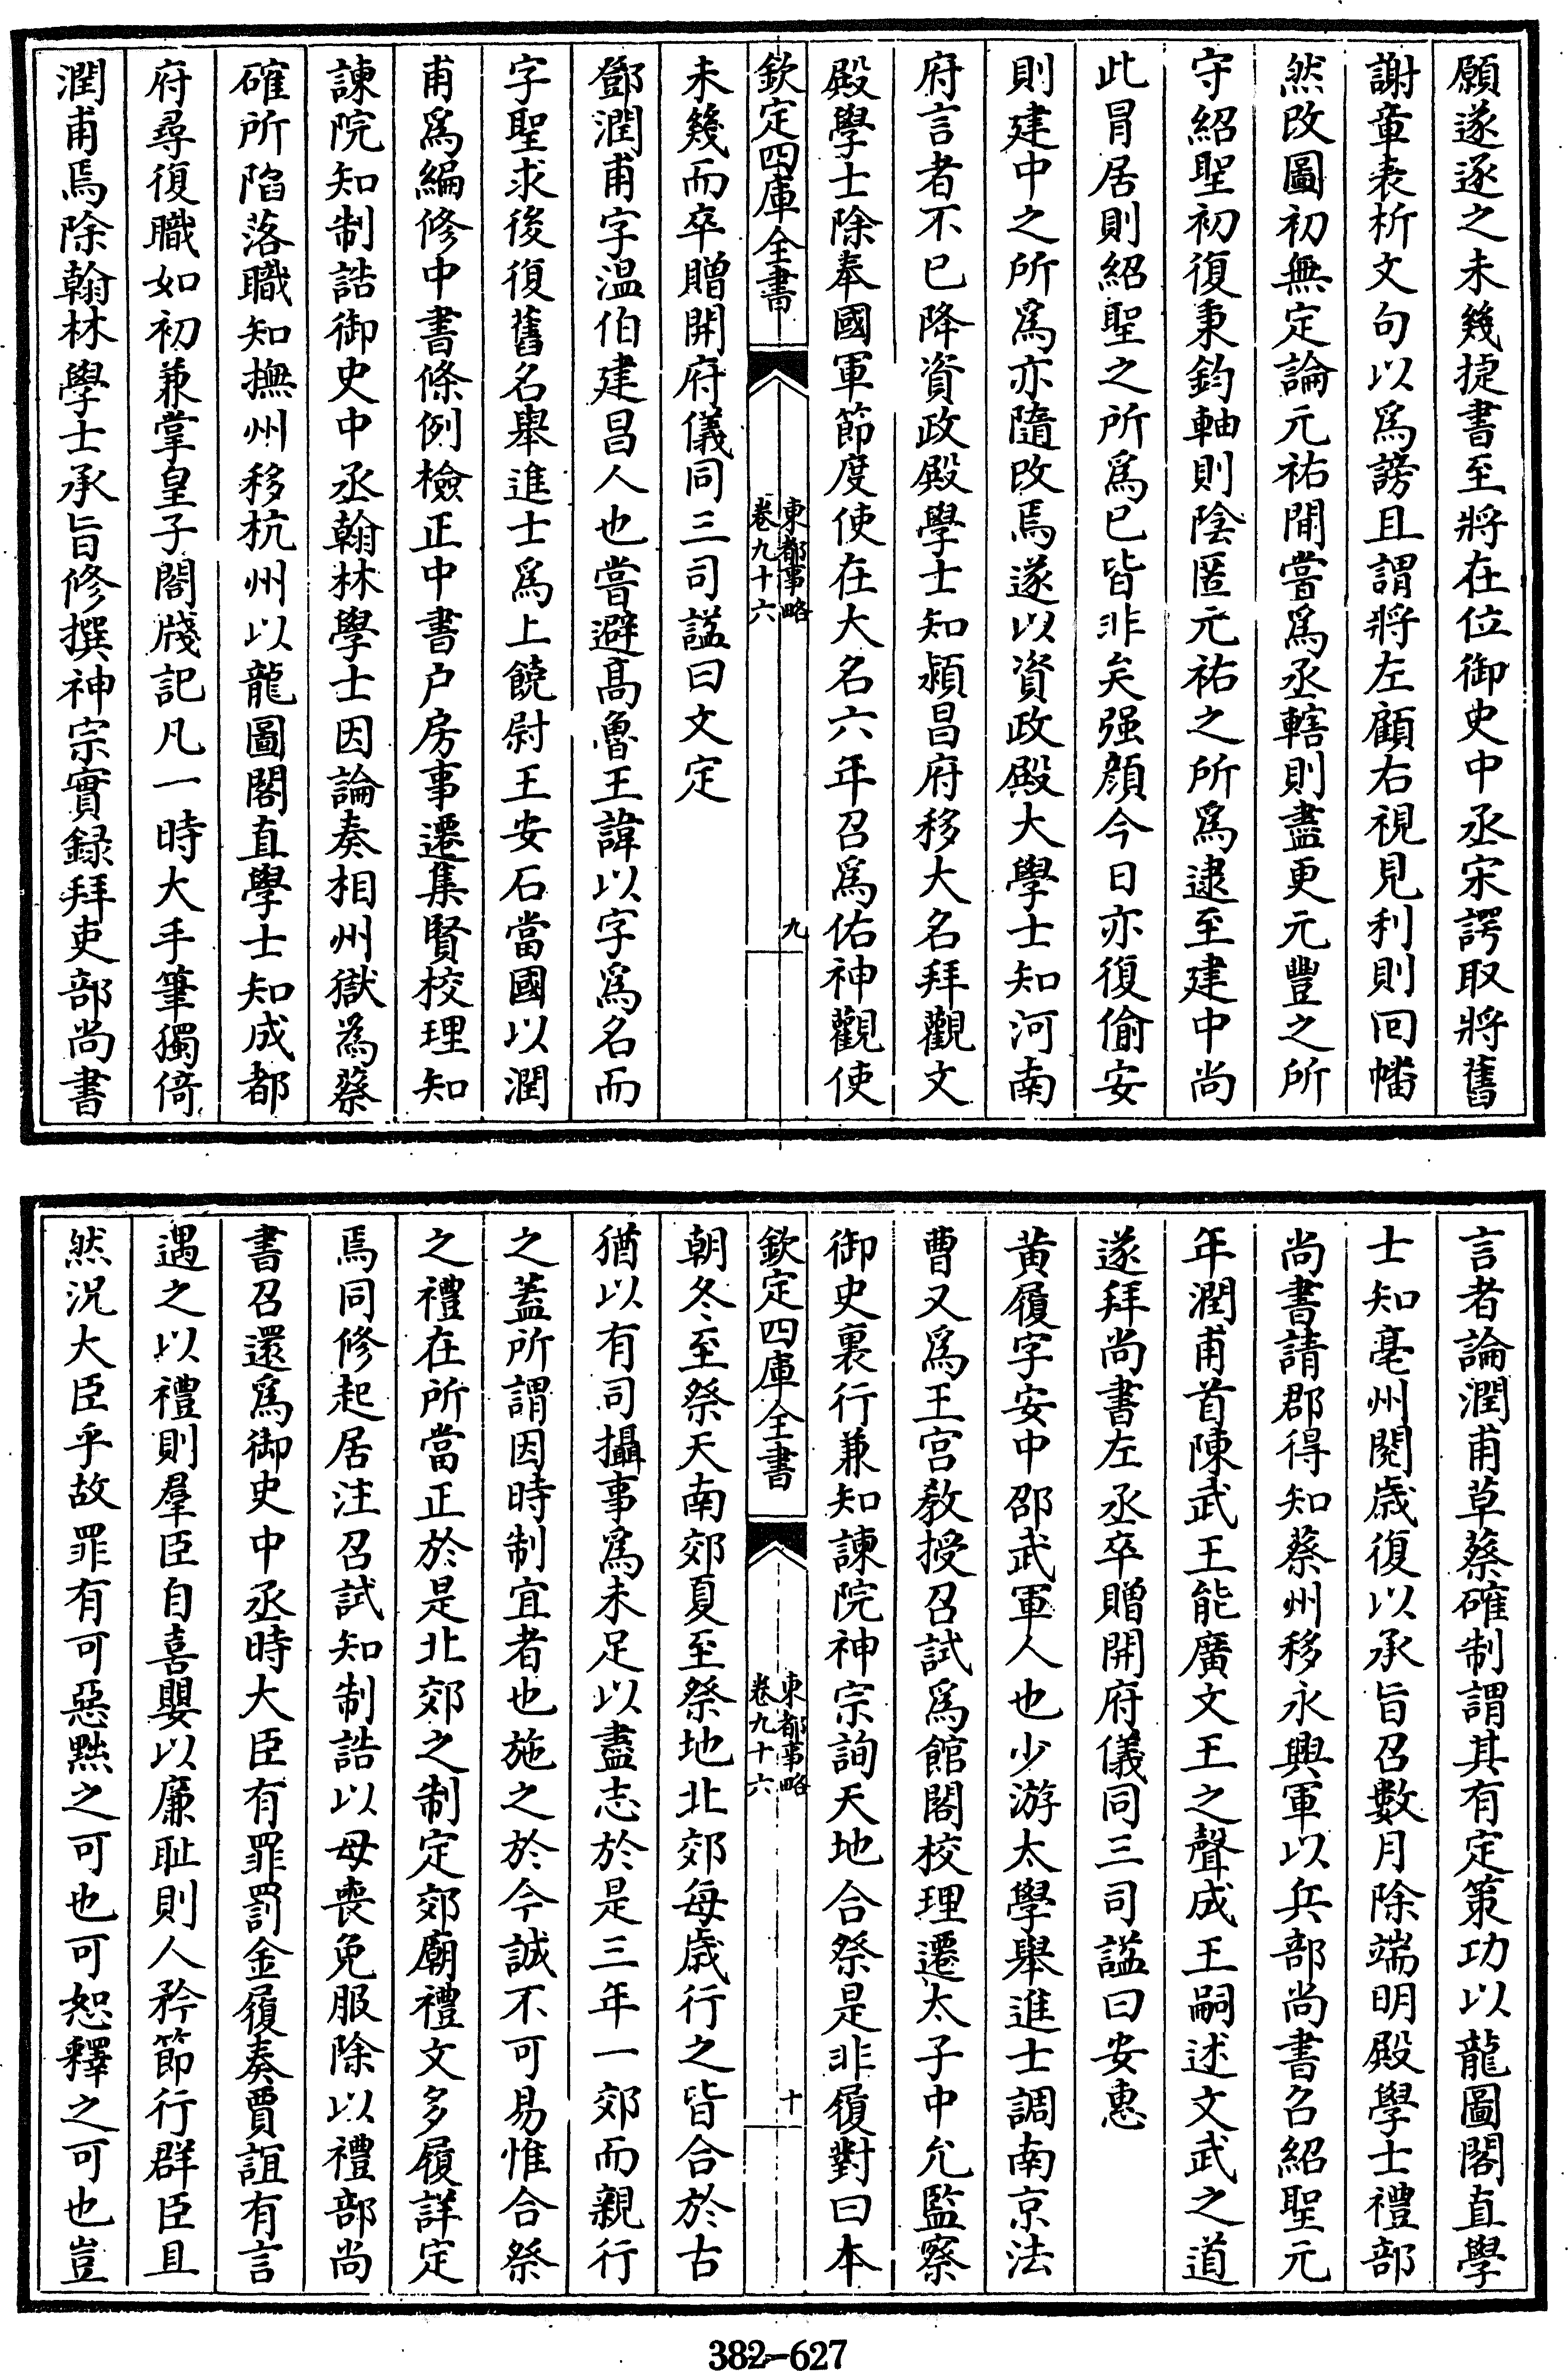 願遂逐之未幾捷書至將在位御史中丞宋諤取將舊
謝章表析文句以爲謗且謂將左顧右視見利則回幡
然改圖初無定論元祐間嘗爲丞轄則盡更元豐之所
守紹聖初復秉鈞軸則陰匿元祐之所爲逮至建中尚
此冒居則紹聖之所爲已皆非矣强顔今日亦復偷安
則建中之所爲亦隨改焉遂以資政殿大學士知河南
府言者不已降資政殿學士知潁昌府移大名拜觀文
殿學士除奉國軍節度使在大名六年召爲佑神觀使
欽定四庫全書
東都事略
卷九十六
九
未幾而卒贈開府儀同三司諡曰文定
鄧潤甫字温伯建昌人也嘗避髙魯王諱以字爲名而
字聖求後復舊名舉進士爲上饒尉王安石當國以潤
甫爲編修中書條例檢正中書户房事遷集賢校理知
諫院知制誥御史中丞翰林學士因論奏相州獄爲蔡
確所陷落職知撫州移杭州以龍圖閣直學士知成都
府尋復職如初兼掌皇子閤牋記凡一時大手筆獨倚
潤甫焉除翰林學士承旨修撰神宗實録拜吏部尚書
言者論潤甫草蔡確制謂其有定策功以龍圖閣直學
士知亳州閱歲復以承旨召數月除端明殿學士禮部
尚書請郡得知蔡州移永興軍以兵部尚書召紹聖元
年潤甫首陳武王能廣文王之聲成王嗣述文武之道
遂拜尚書左丞卒贈開府儀同三司諡曰安惠
黄履字安中邵武軍人也少游太學舉進士調南京法
曹又爲王宫教授召試爲館閣校理遷太子中允監察
御史裏行兼知諫院神宗詢天地合祭是非履對曰本
欽定四庫全書
東都事略
卷九十六
十
朝冬至祭天南郊夏至祭地北郊每歲行之皆合於古
猶以有司攝事爲未足以盡志於是三年一郊而親行
之蓋所謂因時制宜者也施之於今誠不可易惟合祭
之禮在所當正於是北郊之制定郊廟禮文多履詳定
焉同修起居注召試知制誥以母喪免服除以禮部尚
書召還爲御史中丞時大臣有罪罰金履奏賈誼有言
遇之以禮則羣臣自喜嬰以廉恥則人矜節行群臣且
然況大臣乎故罪有可惡黜之可也可恕釋之可也豈
382-627